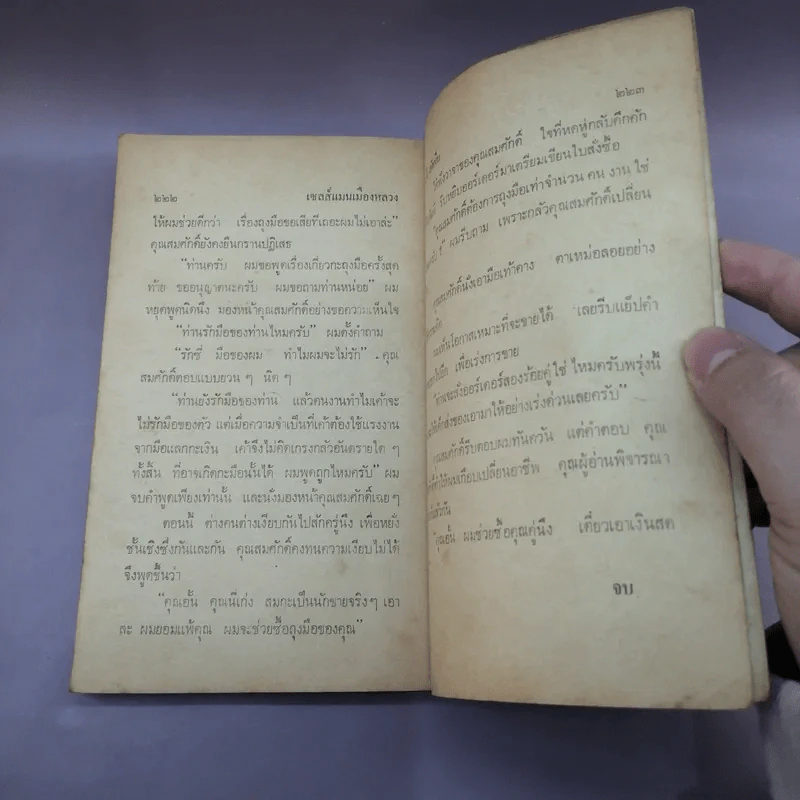 ๒๒๒ เซลส์แมนเมืองหลวง
ให้ผมช่วยดีกว่า เรื่องถุงมือขอเสียทีเถอะผมไม่เอาล่ะ”
คุณสมศักดิ์ยังคงยืนกรานปฏิเสธ
“ท่านครับ ผมขอพูดเรื่องเกี่ยวกะถุงมือครั้งสุด
ท้าย ขออนุญาตนะครับ ผมขอถามท่านหน่อย” ผม
หยุดพูดนิดนึง มองหน้าคุณสมศักดิ์อย่างขอความเห็นใจ
“ท่านรักมือของท่านไหมครับ” ผมตั้งคำถาม
“รักซี่ มือของผม ทำไมผมจะไม่รัก” คุณ
สมศักดิ์ตอบแบบยวน ๆ นิด ๆ
“ท่านยังรักมือของท่าน แล้วคนงานทำไมเค้าจะ
ไม่รักมือของตัว แต่เมื่อความจำเป็นที่เค้าต้องใช้แรงงาน
จากมือแลกกะเงิน เค้าจึงไม่คิดเกรงกลัวอันตรายใด ๆ
ทั้งสิ้น ที่อาจเกิดกะมือนั้นได้ ผมพูดถูกไหมครับ” ผม
จบคำพูดเพียงเท่านั้น และนั่งมองหน้าคุณสมศักดิ์เฉยๆ
ตอนนี้ ต่างคนต่างเงียบกันไปสักครู่นึง เพื่อหยั่ง
ชั้นเชิงซึ่งกันและกัน คุณสมศักดิ์คงทนความเงียบไม่ได้
จึงพูดขึ้นว่า
“คุณอั้น คุณนี่เก่ง สมกะเป็นนักขายจริงๆ เอา
ละ ผมยอมแพ้คุณ ผมจะช่วยซื้อถุงมือของคุณ”
๒๒๓
วาจาของคุณสมศักดิ์ ใจที่หดหู่กลับคึกคัก
รีบหยิบออร์เดอร์มาเตรียมเขียนใบสั่งซื้อ
“คุณสมศักดิ์ต้องการถุงมือเท่าจำนวน คน งาน ใช่
ผมรีบถาม เพราะกลัวคุณสมศักดิ์เปลี่ยน
คุณสมศักดิ์นั่งเอามือเท้าคาง ตาเหม่อลอยอย่าง
โอกาสเหมาะที่จะขายได้ เลยรีบแย๊ปคำ
เพื่อเร่งการขาย
ออร์เดอร์สองร้อยคู่ใช่ ไหมครับพรุ่งนี้
ส่งของเอามาให้อย่างเร่งด่วนเลยครับ”
คุณสมศักดิ์รีบตอบผมทันควัน แต่คำตอบ คุณ
ผมเกือบเปลี่ยนอาชีพ คุณผู้อ่านพิจารณา
กัน
“คุณอั้น ผมช่วยซื้อคุณคู่นึง เดี๋ยวเอาเงินสด
จบ